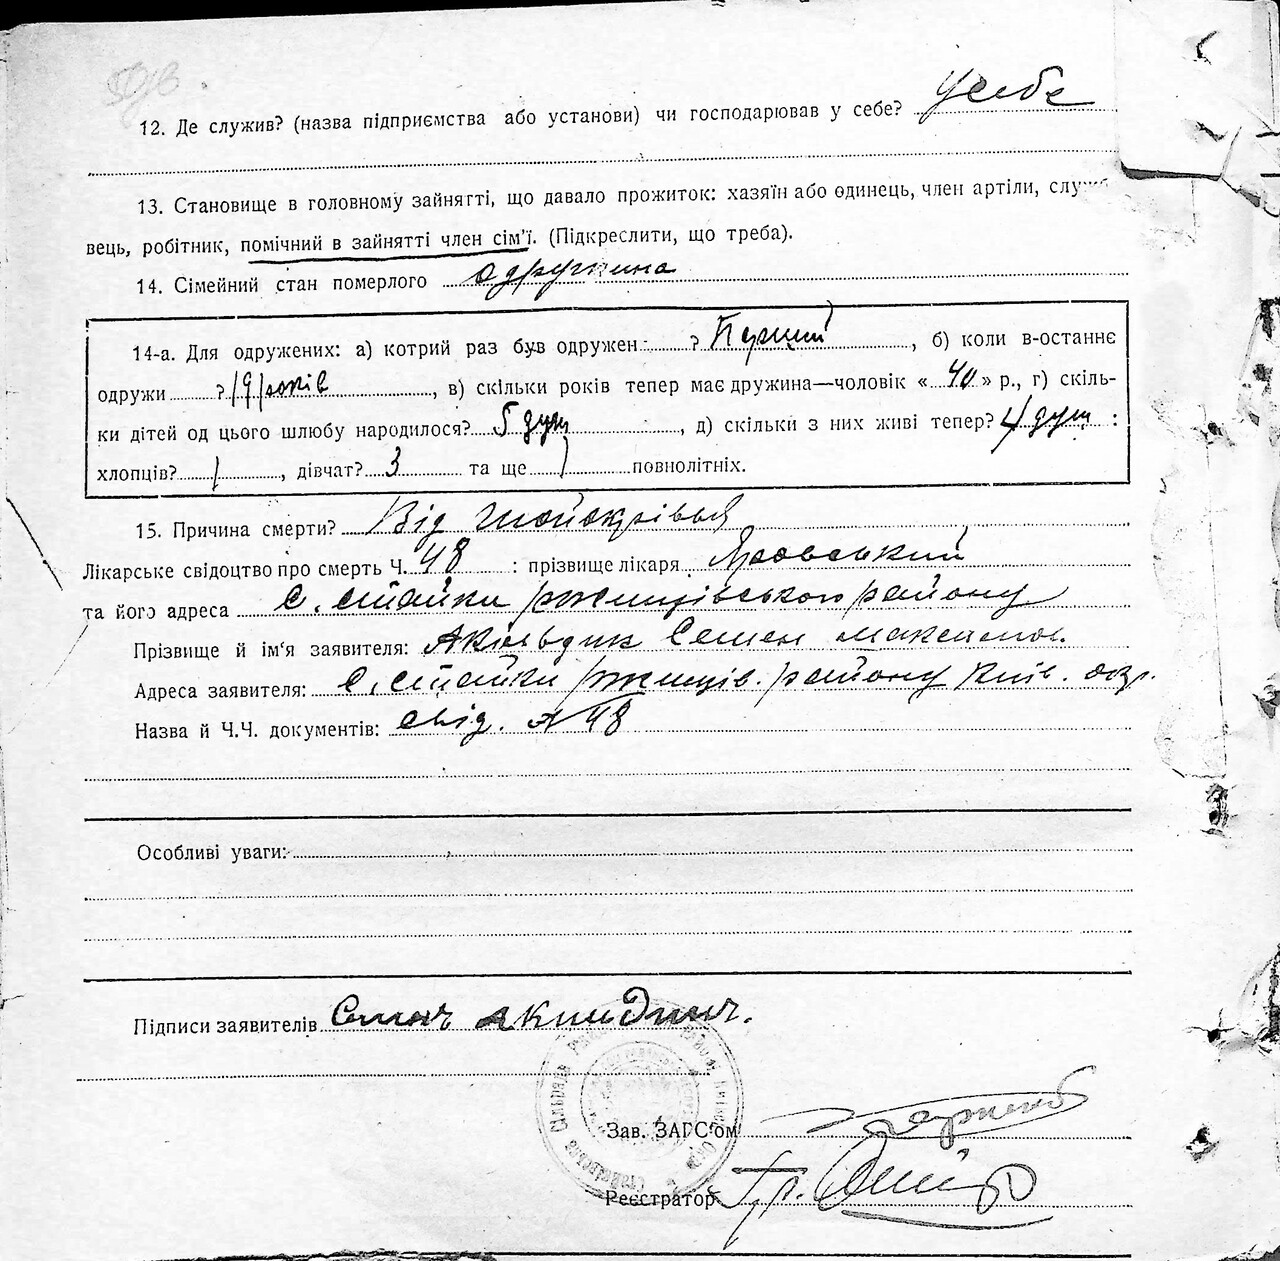 12. Де служив? (назва підприємства або установи) чи господарював у себе? у себе
13. Становище в головному зайнятті, що давало прожиток: хазяїн або одинець, член артіли, служ
вець, робітник, помічний в зайнятті член сім'ї. (Підкреслити, що треба).
14. Сімейний стан померлого одружина
14-а. Для одружених: а) котрий раз був одружен ? Перший , б) коли в-останнє
одружи ? 19 років , в) скільки років тепер має дружина—чоловік « 40 » р., г) скіль-
ки дітей од цього шлюбу народилося? 5 душ , д) скільки з них живі тепер? 4 душ :
хлопців? 1 , дівчат? 3 та ще 1 повнолітніх.
15. Причина смерти? Від
Лікарське свідоцтво про смерть Ч. 48 : прізвище лікаря
та його адреса С. Стайки Ржищівського району
Прізвище й ім'я заявителя: Семен Максимов.
Адреса заявителя: С. Стайки Ржищів. району Київ. окр.
Назва й Ч.Ч. документів: свід. № 48
Особливі уваги:
Підписи заявителів Семен
Зав. ЗАГС'ом
Реєстратор